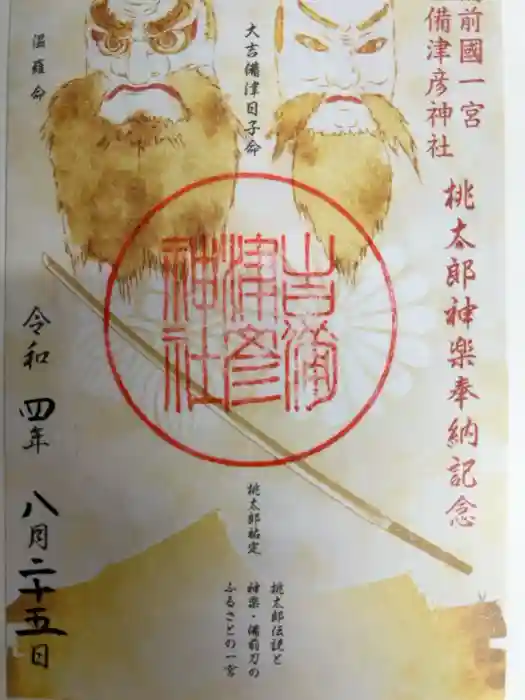 備前國一宮
備津彦神社
桃太郎神楽奉納記念
大吉備津日子命
温羅命
吉備
津彦
神社
桃太郎祐定
桃太郎伝説と
神楽・備前刀の
ふるさとの一宮
令和四年八月二十五日